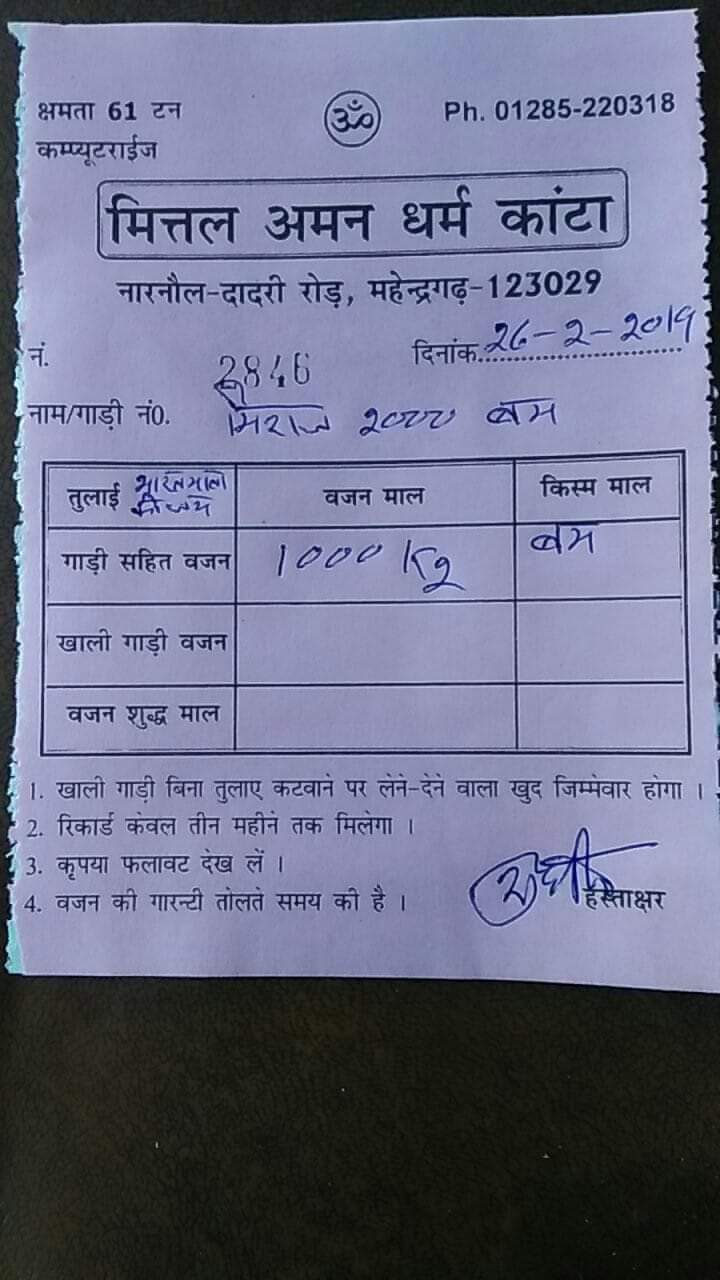 क्षमता 61 टन
ॐ
Ph. 01285-220318
कम्प्यूटराईज
मित्तल अमन धर्म कांटा
नारनौल-दादरी रोड़, महेन्द्रगढ़-123029
नं. 2846
दिनांक 26-2-2019
नाम/गाड़ी नं0. मिराज 2000 बम
तुलाई भारत माता की जय
वजन माल
किस्म माल
गाड़ी सहित वजन 1000 Kg बम
खाली गाड़ी वजन
वजन शुद्ध माल
1. खाली गाड़ी बिना तुलाए कटवाने पर लेने-देने वाला खुद जिम्मेवार होगा ।
2. रिकार्ड केवल तीन महीने तक मिलेगा ।
3. कृपया फलावट देख लें ।
4. वजन की गारन्टी तोलते समय की है ।
हस्ताक्षर